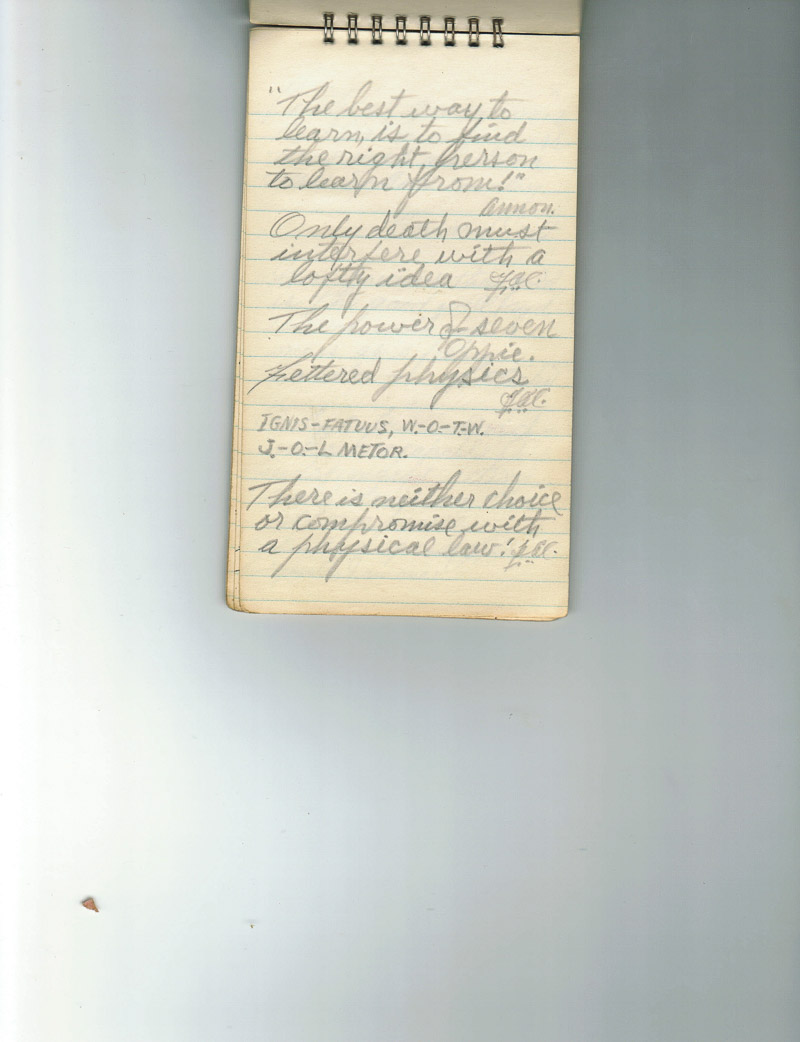 "The best way to
learn, is to find
the right person
to learn from!"
Annon.
Only death must
interfere with a
lofty idea
The power of seven
Oppie.
Fettered physics
IGNIS-FATUUS, W.-O-T-W.
J.-O-L METOR.
There is neither choice
or compromise with
a physical law!